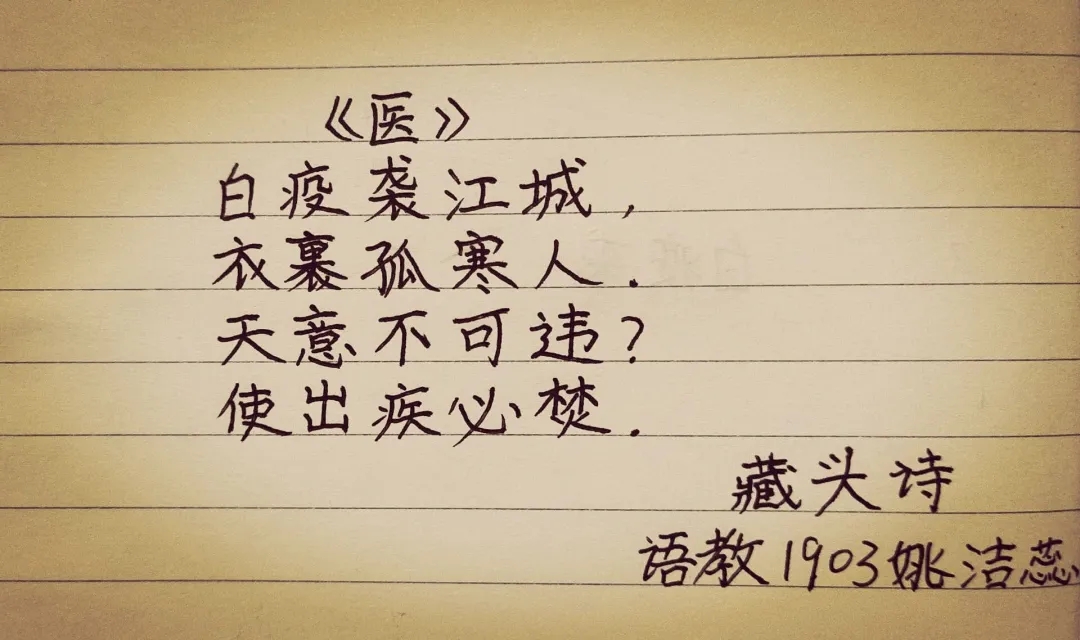 《医》
白疫袭江城，
衣裹孤寒人.
天意不可违？
使出疾必焚.
藏头诗
语教1903姚洁蕊